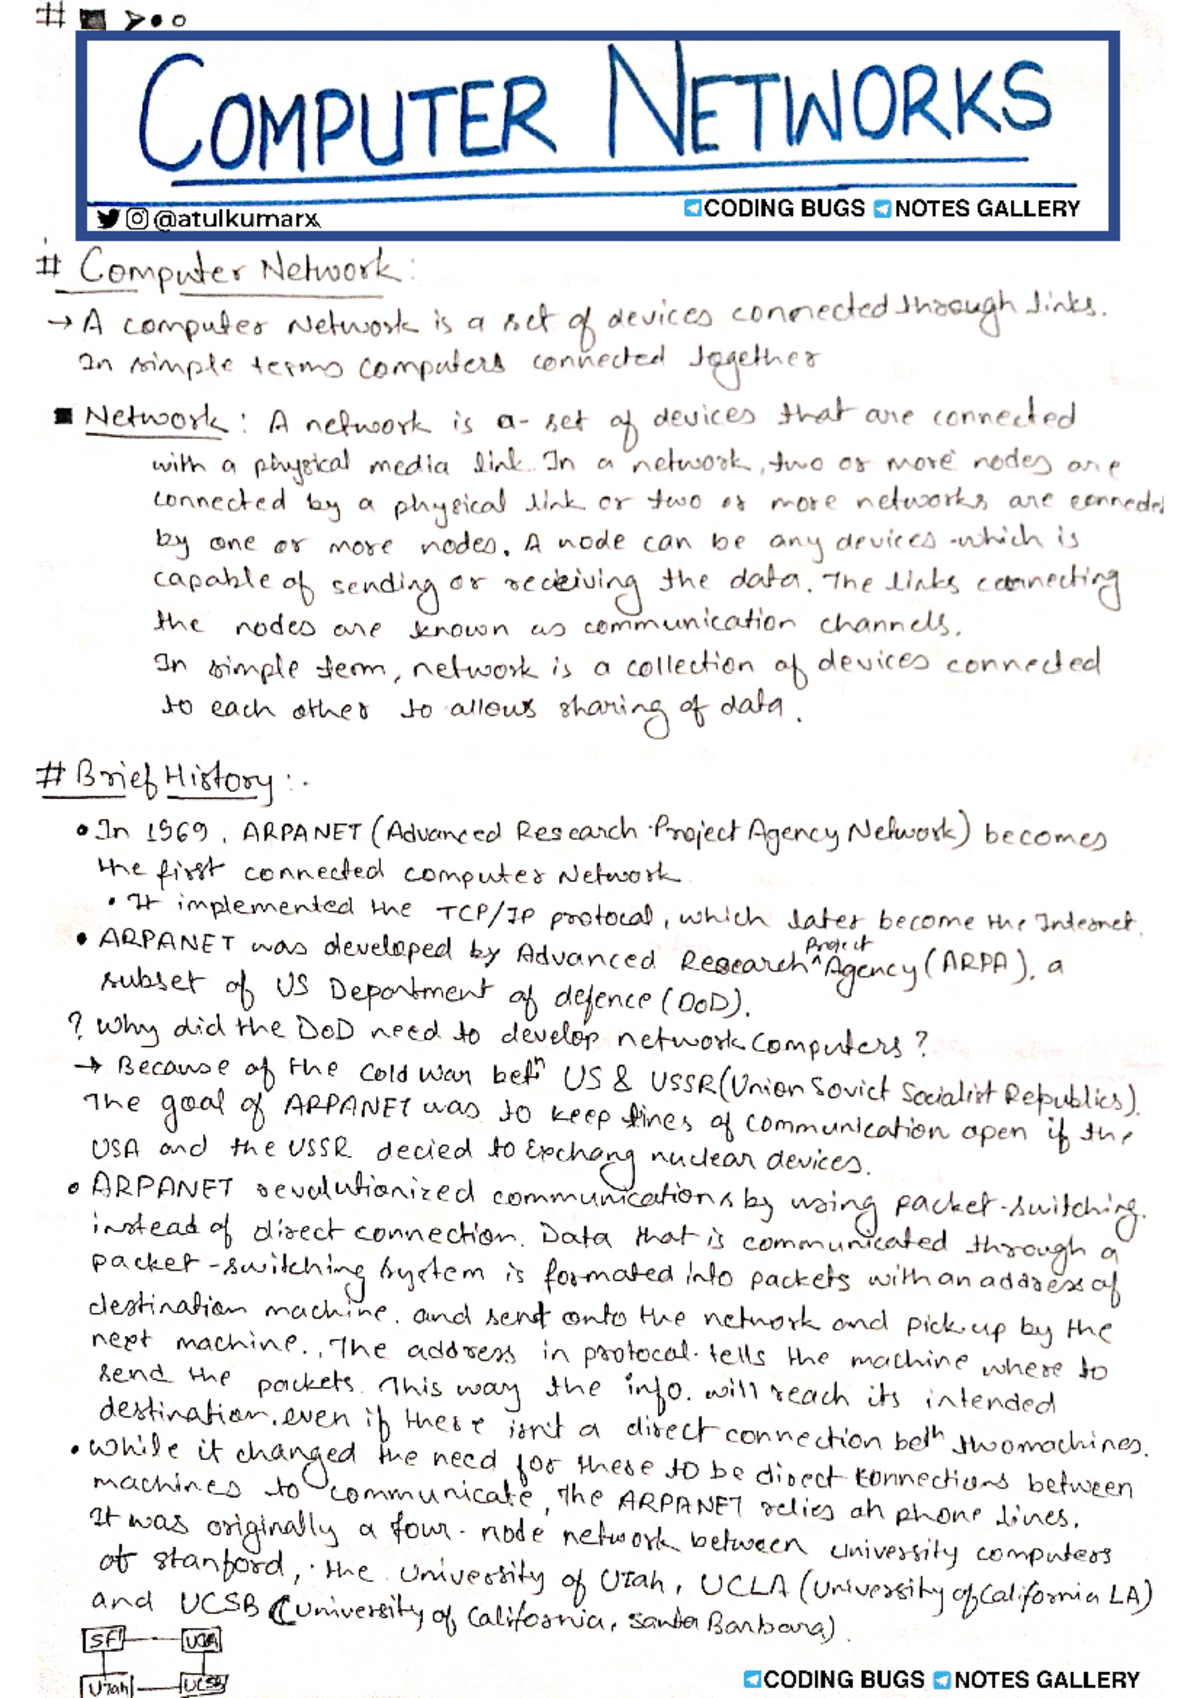 COMPUTER NETWORKS
@atulkumarx
CODING BUGS NOTES GALLERY
# Computer Network:
→ A computer Network is a set of devices connected through links.
In simple terms computers connected together
■ Network: A network is a set of devices that are connected
with a physical media link. In a network, two or more nodes are
connected by a physical link or two or more networks are connected
by one or more nodes. A node can be any devices which is
capable of sending or receiving the data. The links connecting
the nodes are known as communication channels.
In simple term, network is a collection of devices connected
to each other to allows sharing of data.
# Brief History:-
• In 1969, ARPANET (Advanced Research Project Agency Network) becomes
the first connected computer Network.
• It implemented the TCP/IP protocal, which later become the Internet.
• ARPANET was developed by Advanced Research ^Project Agency (ARPA), a
subset of US Department of defence (DoD).
? Why did the DoD need to develop network computers?
→ Because of the cold war betn US & USSR (Union Sovict Socialist Republics).
The goal of ARPANET was to keep lines of communication open if the
USA and the USSR decied to Exchang nuclear devices.
• ARPANET revolutionized communications by using packet-switching.
instead of direct connection. Data that is communicated through a
packet-switching system is formated into packets with an address of
destination machine. and sent onto the network and pick up by the
next machine. The address in protocal tells the machine where to
send the packets. This way the info. will reach its intended
destination, even if there isn't a direct connection beth two machines.
• While it changed the need for these to be direct connections between
machines to communicate, the ARPANET relies on phone lines.
It was originally a four-node network between university computers
at Stanford, the University of Utah, UCLA (University of California LA)
and UCSB (University of California, Santa Barbara).
SF UCLA
Utah UCSB
CODING BUGS NOTES GALLERY